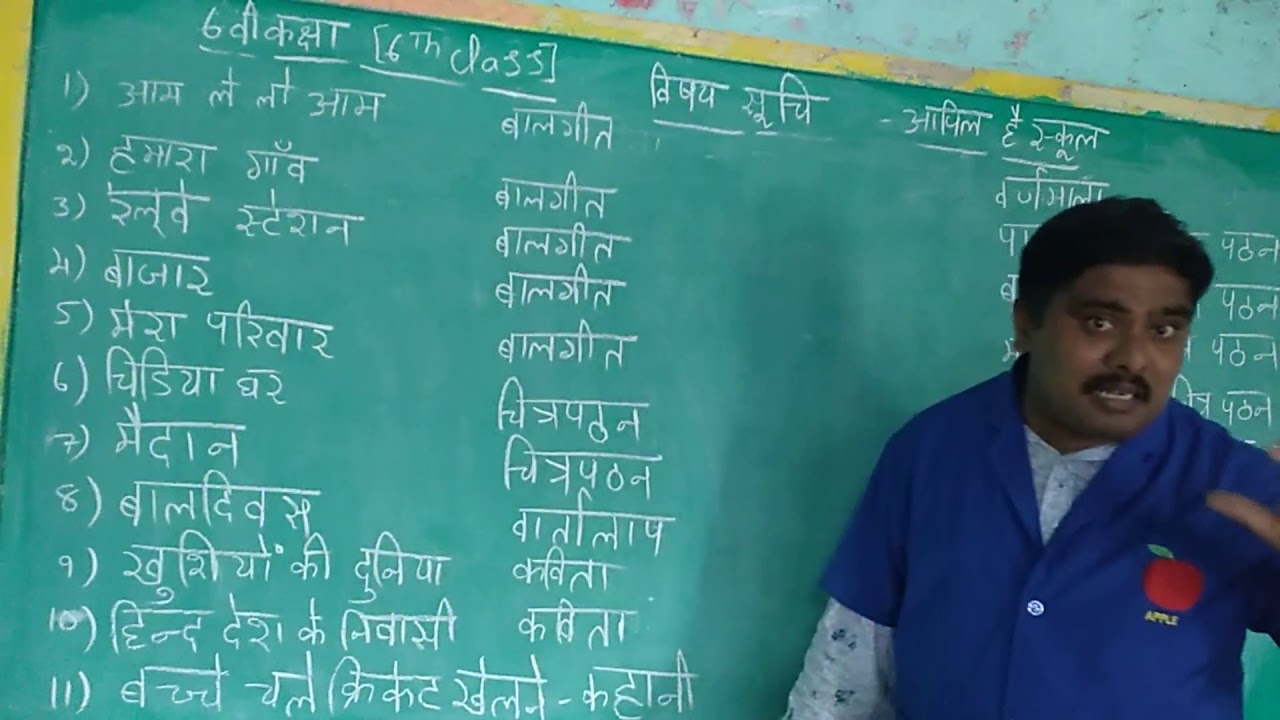 6वी कक्षा [6Th class]
विषय सूचि - आपिल हैस्कूल
1) आम ले लो आम बालगीत
2) हमारा गाँव बालगीत
3) रेल्वे स्टेशन बालगीत
4) बाजार बालगीत
5) मेरा परिवार बालगीत
6) चिडिया घर चित्रपठन
7) मैदान चित्रपठन
8) बालदिवस वार्तालाप
9) खुशियों की दुनिया कविता
10) हिन्द देश के निवासी कविता
11) बच्चे चले क्रिकेट खेलने - कहानी
वर्णमाला
पठन
पठन
पठन
पठन
APPLE